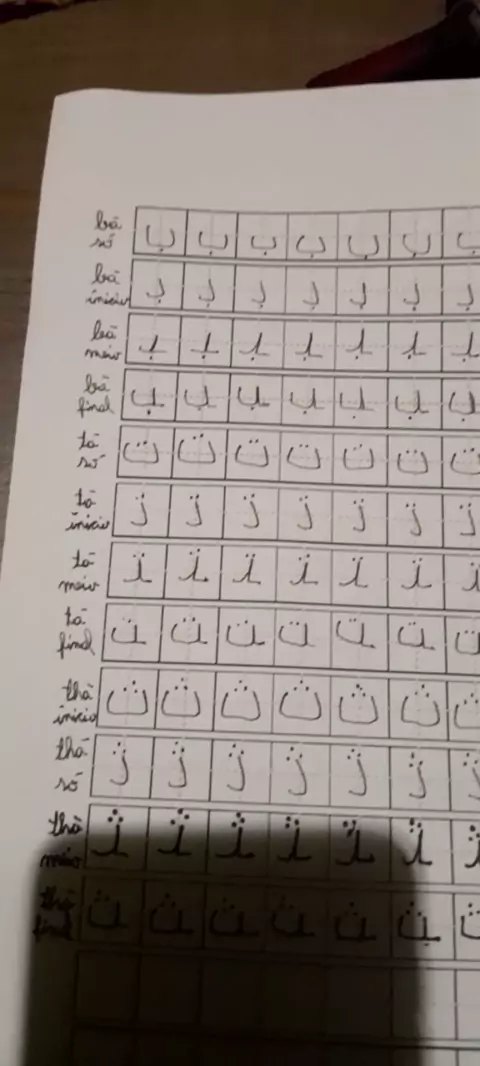 bā
só
ب ب ب ب ب ب ب
bā
início
بـ بـ بـ بـ بـ بـ بـ
bā
meio
ـبـ ـبـ ـبـ ـبـ ـبـ ـبـ ـبـ
bā
final
ـب ـب ـب ـب ـب ـب ـب
tā
só
ت ت ت ت ت ت ت
tā
início
تـ تـ تـ تـ تـ تـ تـ
tā
meio
ـتـ ـتـ ـتـ ـتـ ـتـ ـتـ ـتـ
tā
final
ـت ـت ـت ـت ـت ـت ـت
thā
início
ث ث ث ث ث ث ث
thā
só
ثـ ثـ ثـ ثـ ثـ ثـ ثـ
thā
meio
ـثـ ـثـ ـثـ ـثـ ـثـ ـثـ ـثـ
thā
final
ـث ـث ـث ـث ـث ـث ـث